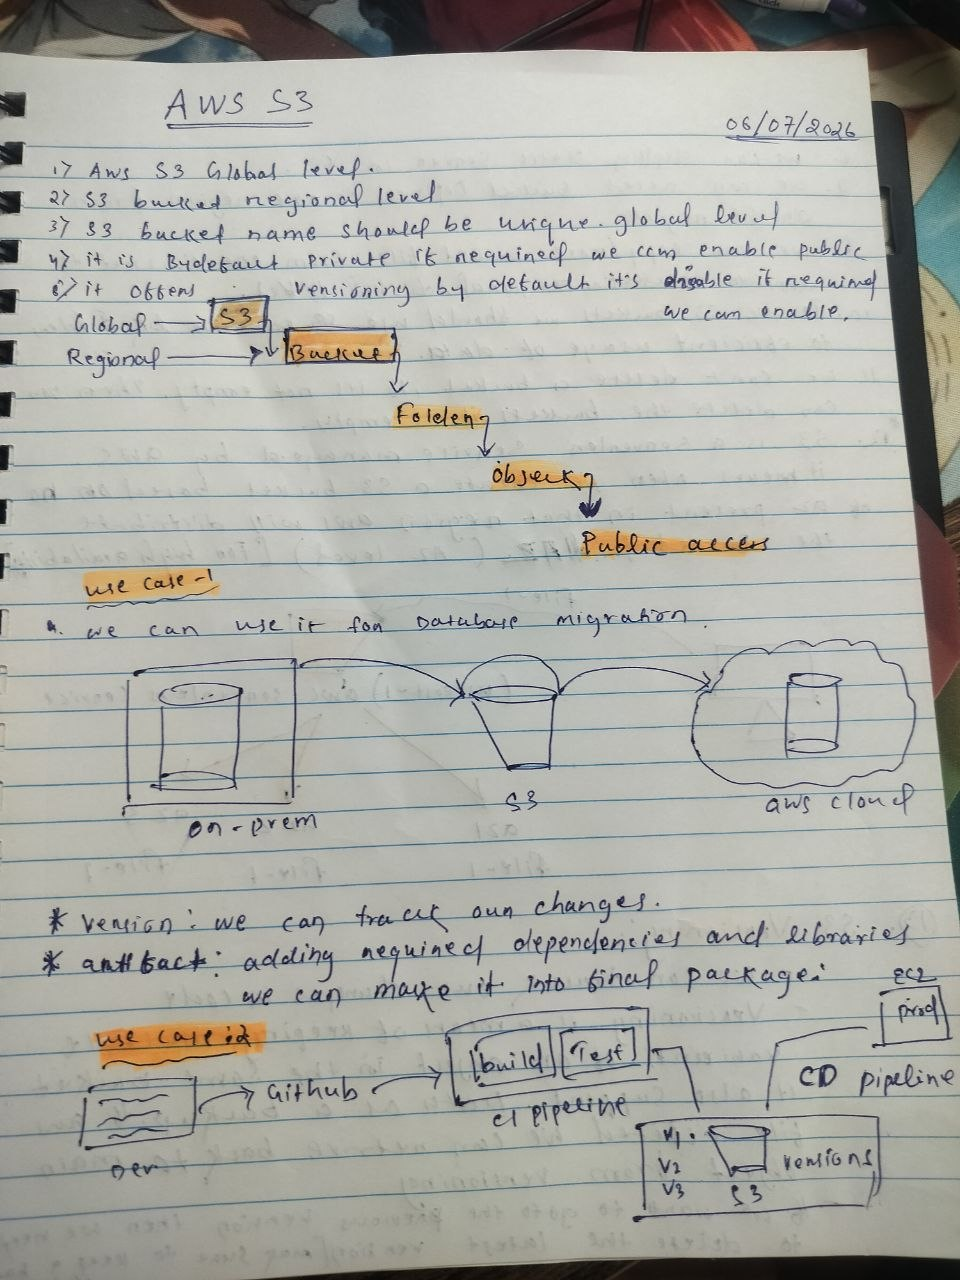 AWS S3
06/07/2026
1) Aws S3 Global level.
2) S3 bucked regional level
3) S3 bucket name should be unique. global level
4) it is Bydefault private if required we can enable public
5) it offers versioning by default it's disable if required
we can enable.
Global S3
Regional Bucket
Folder
Object
Public access
use case-1
we can use it for Database migration.
on-prem
S3
aws cloud
* version: we can track our changes.
* artifact: adding required dependencies and libraries
we can make it into final package:
EC2
prod
use case :2
build Test
Github
CD pipeline
CI pipeline
Dev
V1.
V2
V3
versions
S3